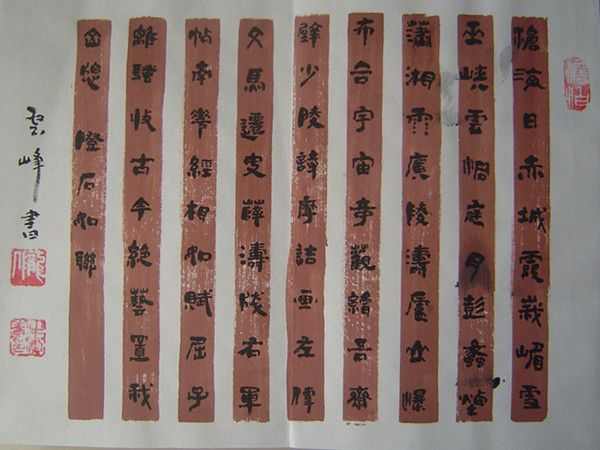 滄海日赤城霞峩嵋雪
巫峽雲洞庭月彭蠡煙
瀟湘雨廣陵濤廬山瀑
布合宇宙奇觀繪吾齋
壁少陵詩摩詰画左傳
文馬遷史薛濤牋右軍
帖南華經相如賦屈子
離騷收古今絕藝置我
山窗 鄧石如聯
雲峰書